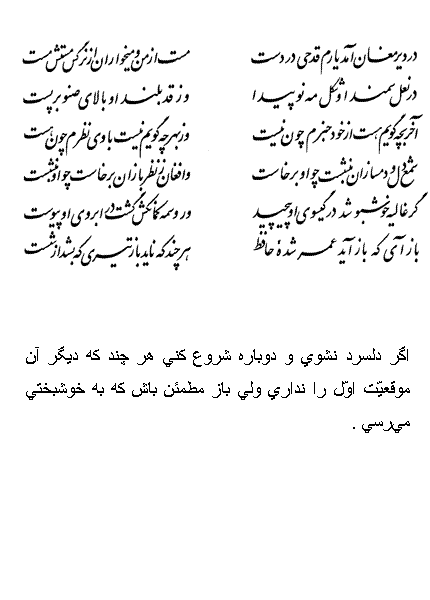 در دیر مغان آمد یارم قدحی در دست مست از می و میخواران از نرگس مستش مست
در نعل سمند او شکل مه نو پیدا وز قد بلند او بالای صنوبر پست
آخر بچه گویم هست از خود خبرم چون نیست وز بهر چه گویم نیست با وی نظرم چون هست
شمع دل دمسازان بنشست چو او برخاست و افغان ز نظر بازان برخاست چو او بنشست
گر غالیه خوشبو شد در گیسوی او پیچید ور وسمه کمانکش گشت در ابروی او پیوست
باز آی که باز آید عمر شدهٔ حافظ هر چند که ناید باز تیری که بشد از شست
اگر دلسرد نشوي و دوباره شروع كني هر چند كه ديگر آن
موقعيّت اوّل را نداري ولي باز مطمئن باش كه به خوشبختي
مي‌رسي .